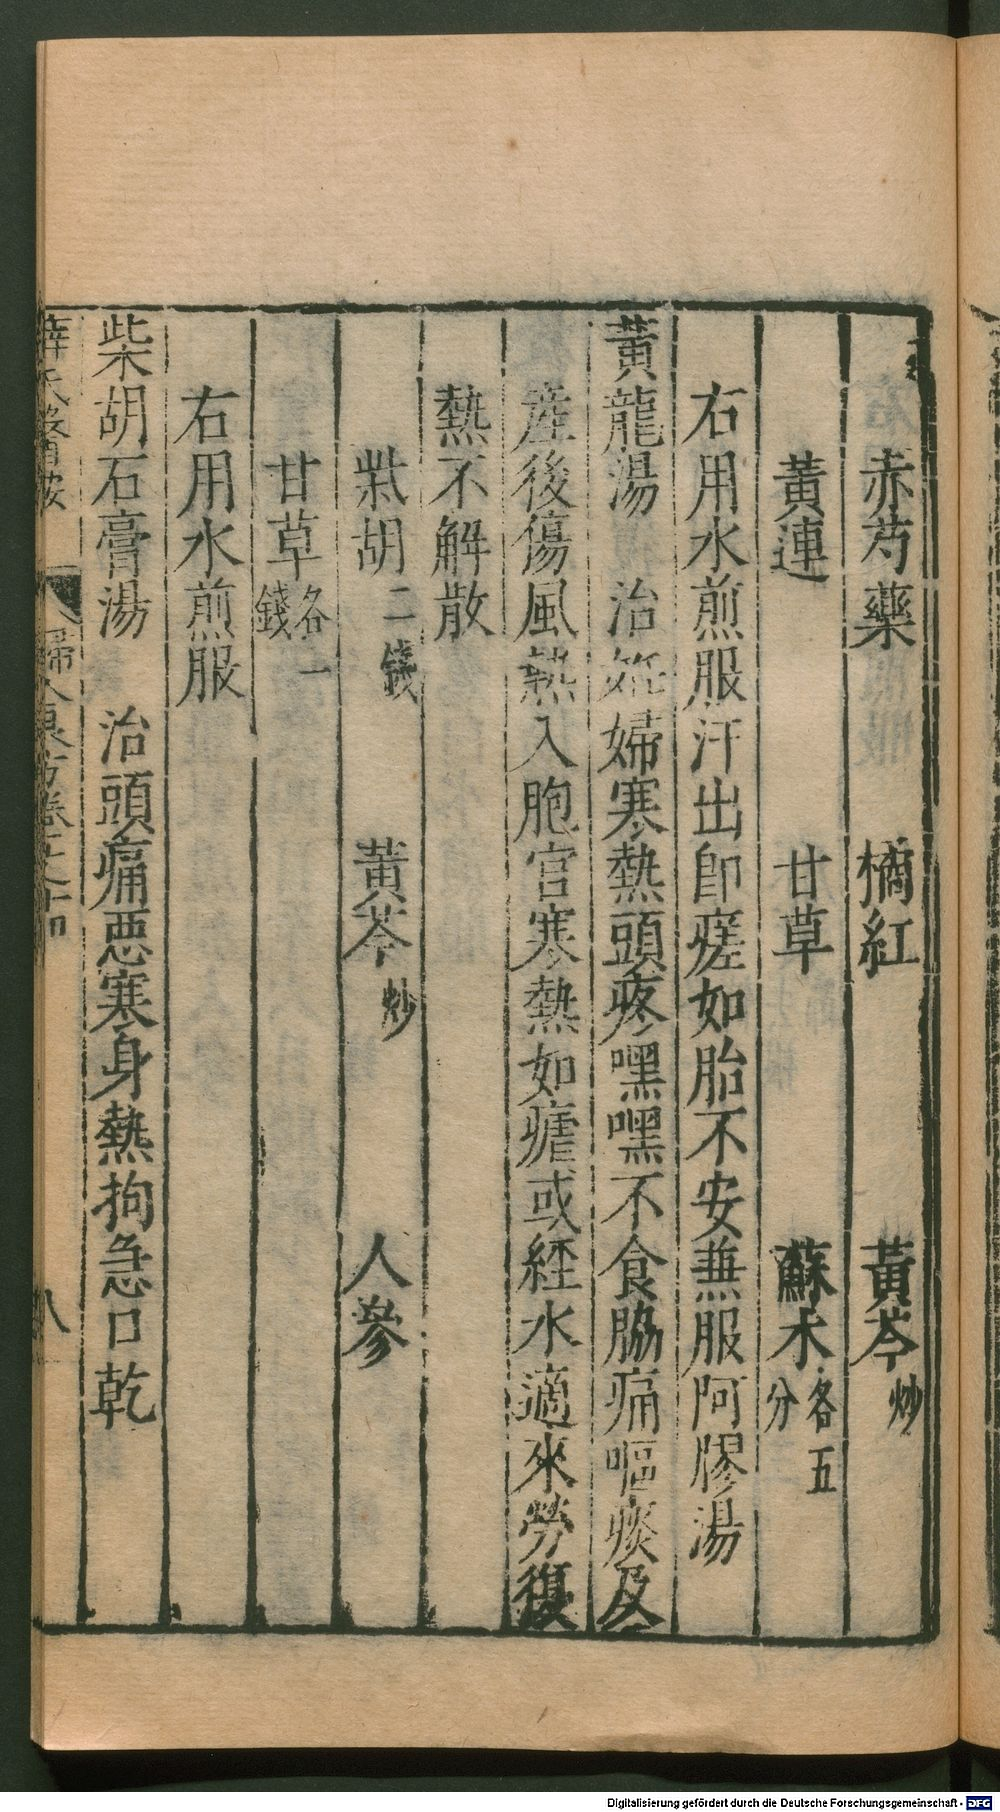 赤芍藥 橘紅 黃芩炒
黃連 甘草 蘇木各五分
右用水煎服汗出卽瘥如胎不安兼服阿膠湯
黃龍湯 治妊婦寒熱頭疼嘿嘿不食脇痛嘔痰及
產後傷風熱入胞宮寒熱如瘧或經水適來勞復
熱不解散
柴胡二錢 黃芩炒 人參
甘草各一錢
右用水煎服
柴胡石膏湯 治頭痛惡寒身熱拘急口乾
薛氏醫按 婦人良方卷之十四 八
Digitalisierung gefördert durch die Deutsche Forschungsgemeinschaft - DFG